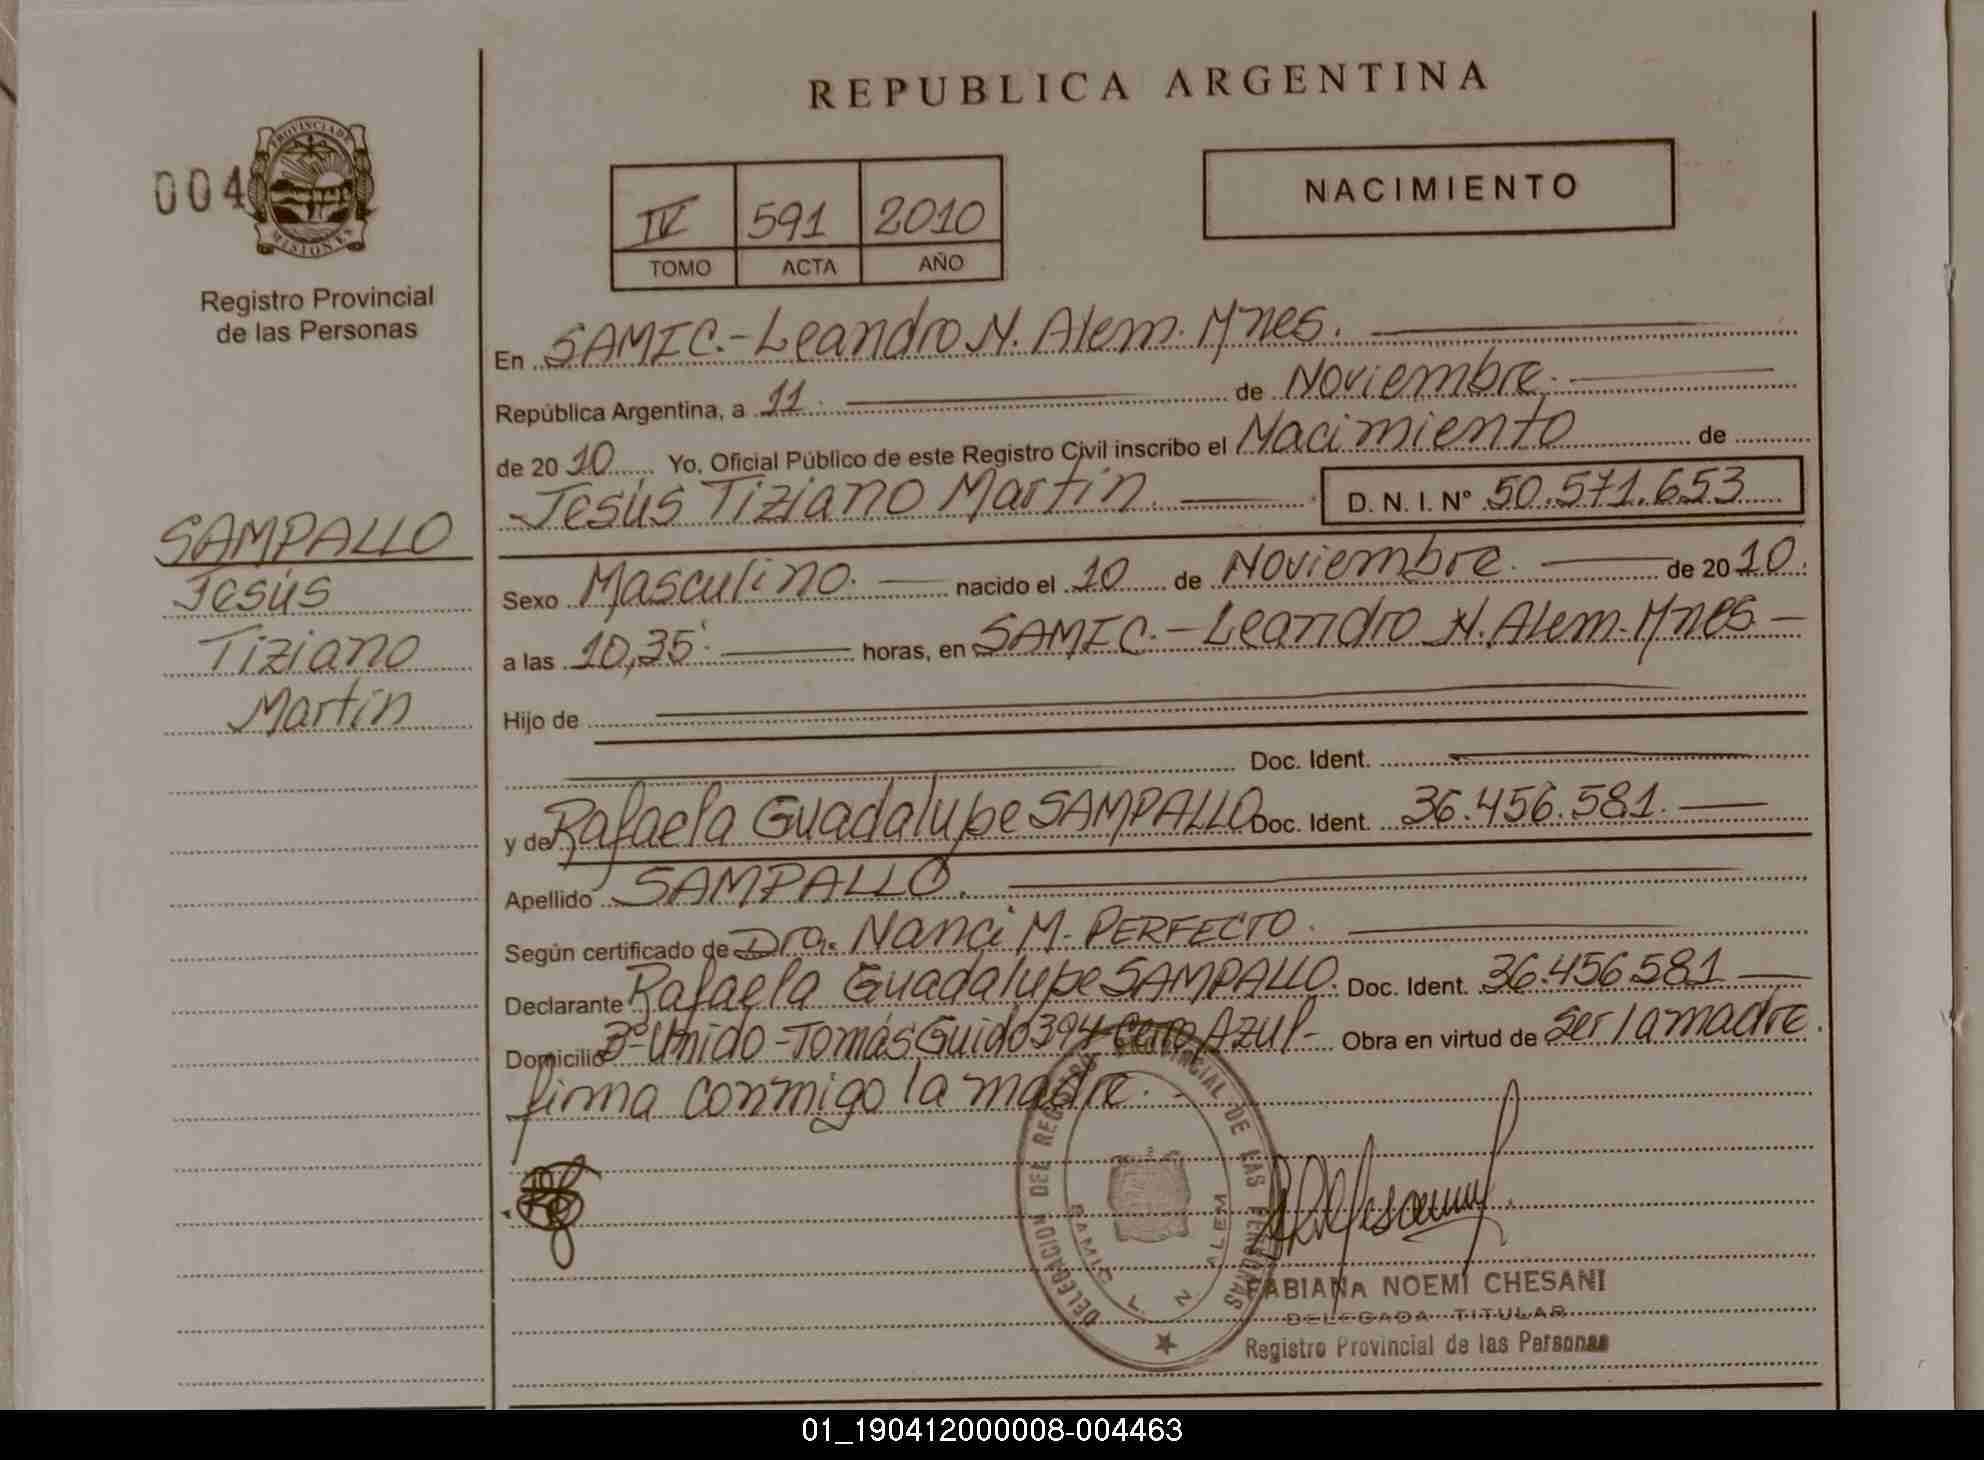 REPUBLICA ARGENTINA
PROVINCIA DE
MISIONES
004
Registro Provincial
de las Personas
IV 591 2010
TOMO ACTA AÑO
NACIMIENTO
En SAMIC.-Leandro N. Alem. Mnes.
República Argentina, a 11. de Noviembre.
de 20 10 Yo, Oficial Público de este Registro Civil inscribo el Nacimiento de
Jesús Tiziano Martín. D. N. I. Nº 50.571.653
SAMPALLO
Jesús
Tiziano
Martín
Sexo Masculino. nacido el 10 de Noviembre. de 20 10.
a las 10,35. horas, en SAMIC.-Leandro N. Alem. Mnes
Hijo de
Doc. Ident.
y de Rafaela Guadalupe SAMPALLO Doc. Ident. 36.456.581.
Apellido SAMPALLO.
Según certificado de Dra. Nanci M. PERFECTO.
Declarante Rafaela Guadalupe SAMPALLO. Doc. Ident. 36.456.581
Domicilio Bº Unido-Tomás Guido 394 Cerro Azul- Obra en virtud de ser la madre.
firma conmigo la madre.
DELEGACION DEL REGISTRO PROVINCIAL DE LAS PERSONAS
SAMIC L. N. ALEM
FABIANA NOEMI CHESANI
DELEGADA TITULAR
Registro Provincial de las Personas
01_190412000008-004463